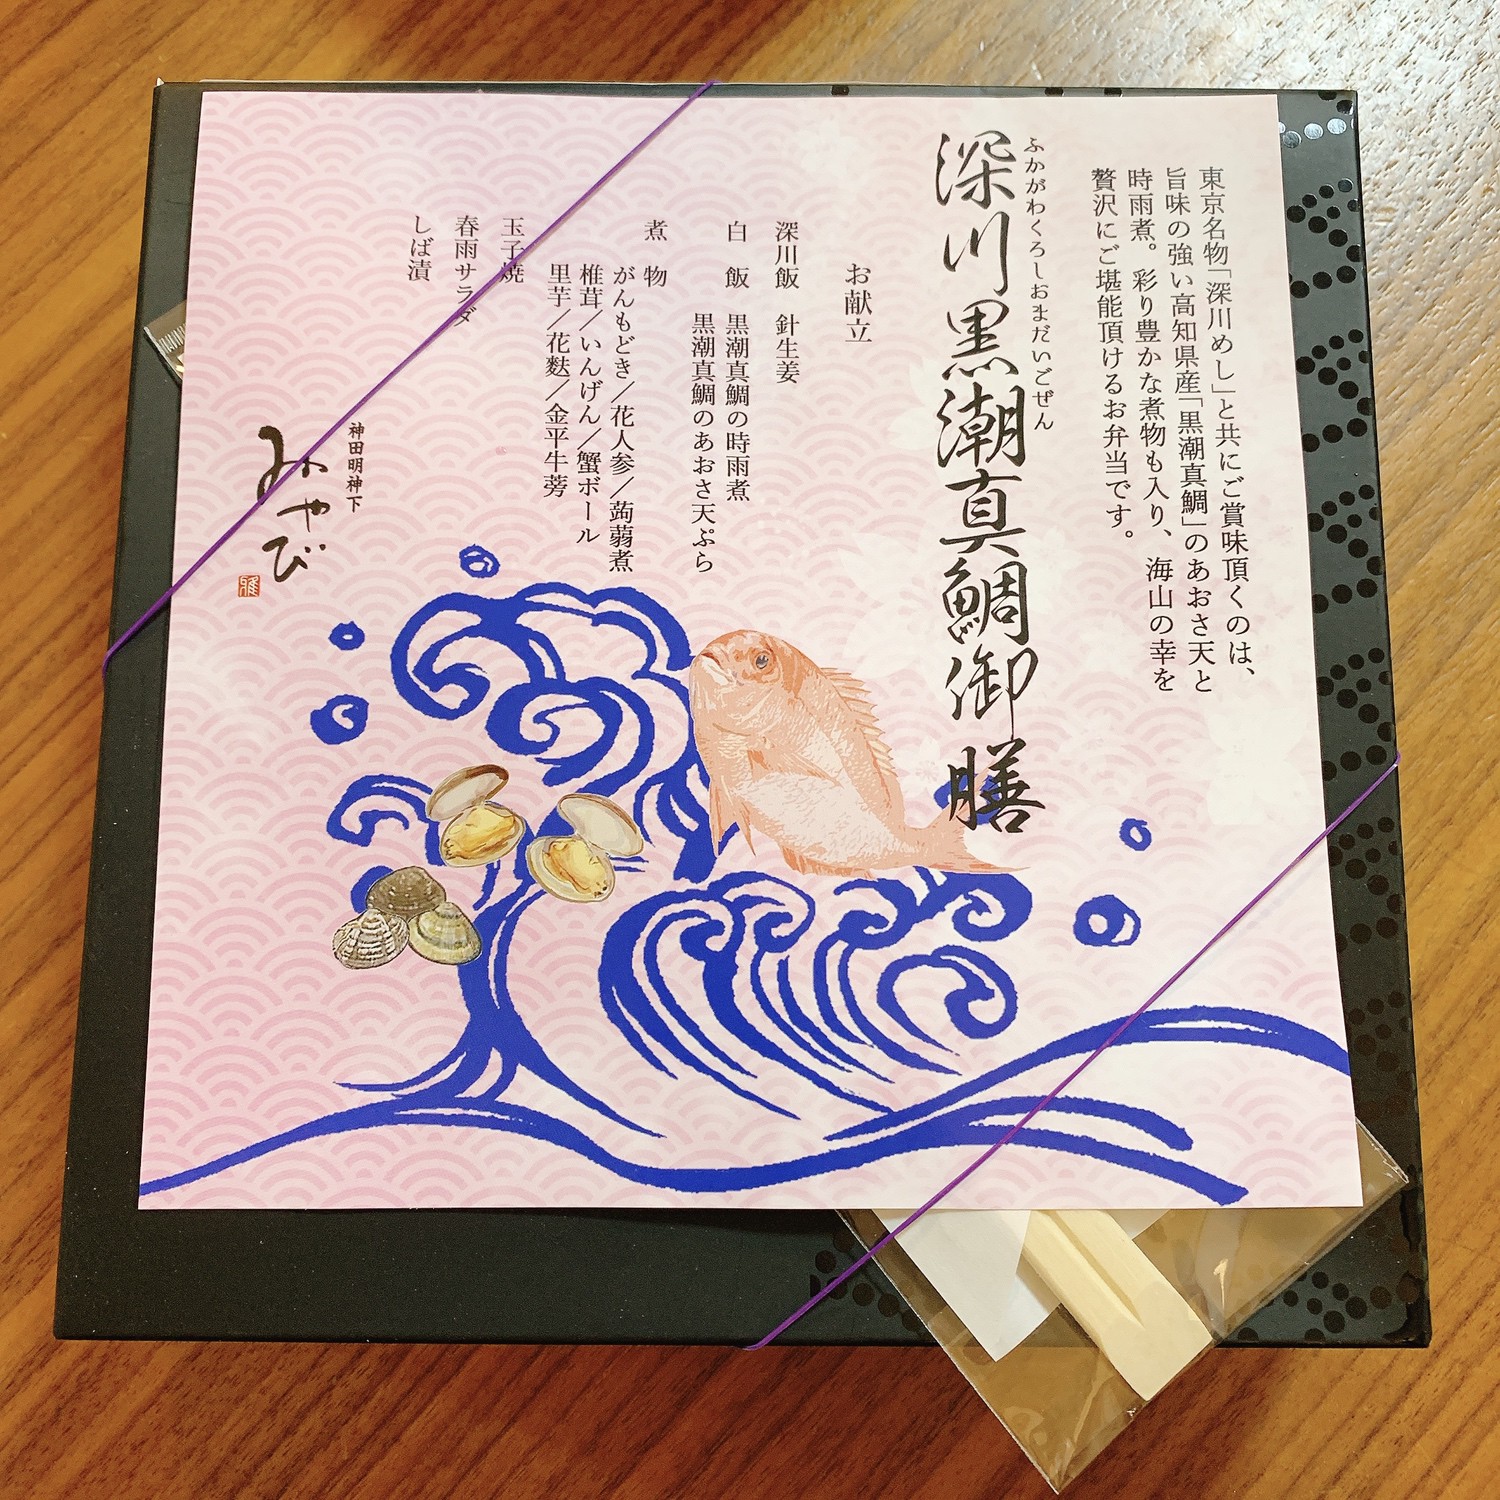 東京名物「深川めし」と共にご賞味頂くのは、
旨味の強い高知県産「黒潮真鯛」のあおさ天と
時雨煮。彩り豊かな煮物も入り、海山の幸を
贅沢にご堪能頂けるお弁当です。
ふかがわくろしおまだいごぜん
深川黒潮真鯛御膳
お献立
深川飯 針生姜
白飯 黒潮真鯛の時雨煮
黒潮真鯛のあおさ天ぷら
煮物
がんもどき／花人参／蒟蒻煮
椎茸／いんげん／蟹ボール
里芋／花麩／金平牛蒡
玉子焼
春雨サラダ
しば漬
神田明神下
みやび
雅